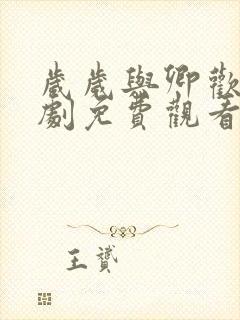 歲歲與卿歡
劇免費觀看
王贊